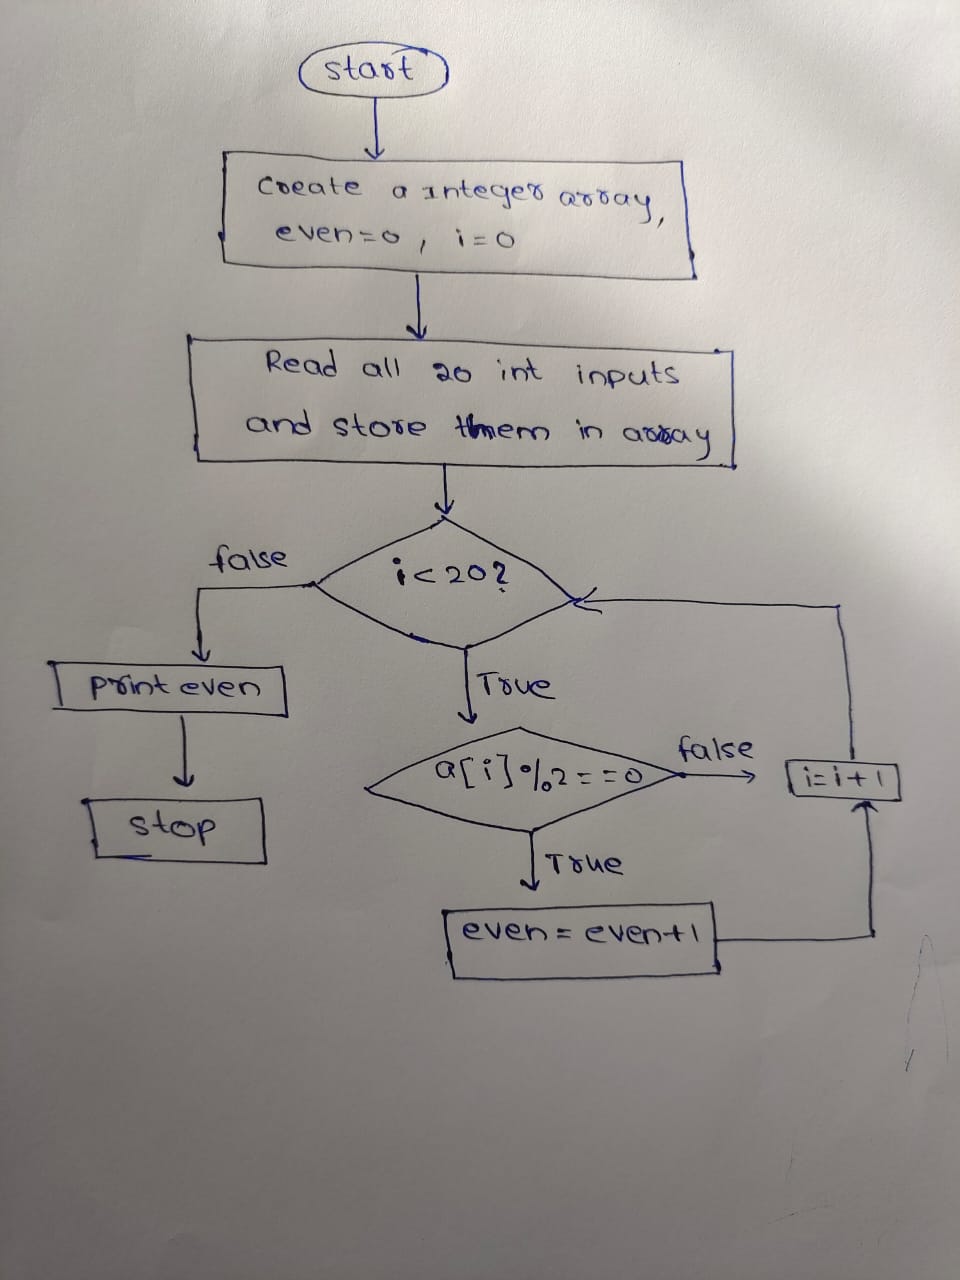 start
Create a integer array,
even=0, i=0
Read all 20 int inputs
and store them in array
false
i<20?
print even
True
stop
a[i]%2==0
false
i=i+1
True
even=even+1